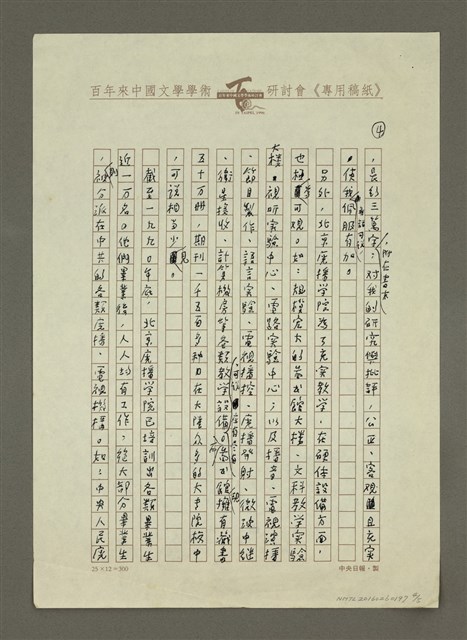 百年來中國文學學術研討會《專用稿紙》
④
，長約三萬字；對我的研究與批評，公正、客觀且充實
，使我佩服有加。
另外，北京廣播學院為了充實教學，在硬体設備方面，
也極為可觀。如：規模宏大的圖書館大樓、文科教學實驗
大樓、視听實驗中心、電腦實驗中心；以及播音、電視演播
、節目製作、語言實驗、電視播控、廣播發射、微波中繼
、衛星接收、計算機房等各類教學設備。圖書館擁有藏書
五十萬册，期刊一千五百多种。在大陸众多的大專院校中
，可說相当少見。
截至一九九0年底，北京廣播学院已培訓出各類畢業生
近一萬名。他們畢業後，人人均有工作，絕大部分畢業生
，被分派在中共的各類廣播、電視機構。如：中央人民廣
25×12=300
中央日報‧製